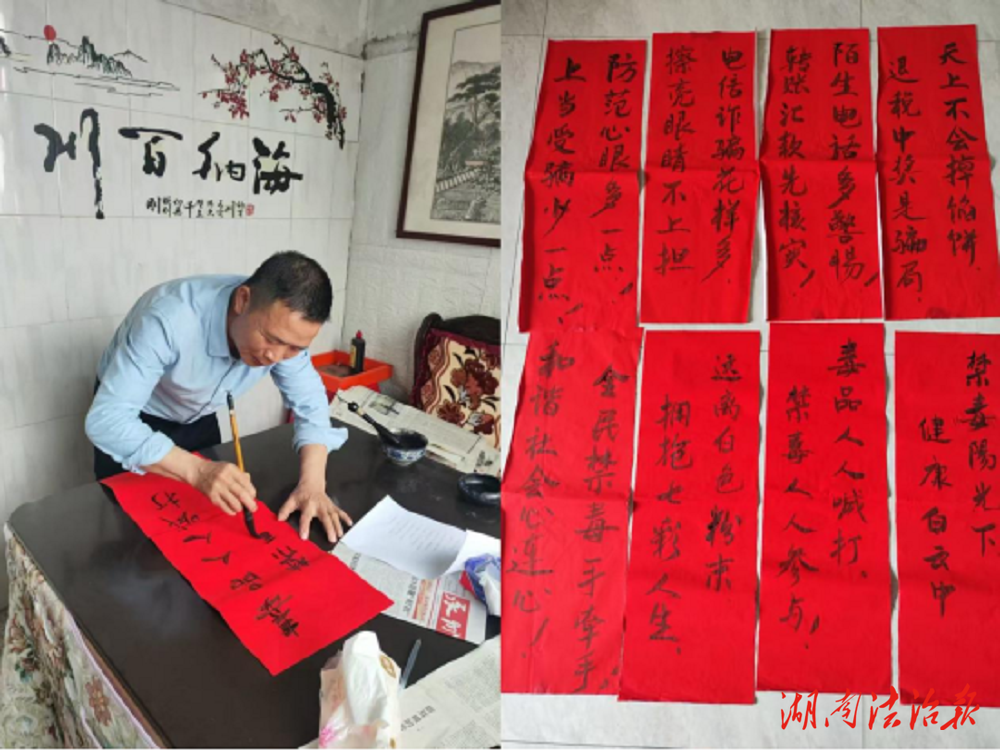 海纳百川
毒品人人喊打
禁毒
天上不会掉馅饼.
退税中奖是骗局.
陌生电话多警惕!
转账汇款先核实!
电信诈骗花样多.
擦亮眼睛不上担
防范心眼多一点!
上当受骗少一点!
禁毒陽光下
健康白云中
毒品人人喊打、
禁毒人人参与!
远离白色粉末
拥抱七彩人生、
全民禁毒手牵手
和谐社会心连心!
湖南法治报